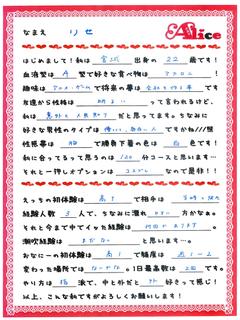 なまえ りせ
Alice
はじめまして!私は 宮城 出身の 22 歳です!
血液型は A 型で好きな食べ物は マカロニ !
趣味は アニメ・ゲーム で将来の夢は です
友達から性格は 明るい って言われるけど、
私は 意外と人見知り だと思ってます。ちなみに
好きな男性のタイプは 優しい、面白い人 ですかね///感
性感帯は 胸 で勝負下着の色は 白 色です!
私に会ってするって思うのは 120 分コースと思います…
それと一押しオプションは コスプレ なので是非!!
えっちの初体験は 高1 で相手は
経験人数 3 人で、ちなみに濡れ やすい 方かなぁ。
それと今まで中でイッた経験は
潮吹経験は まだない と思います…。
おなにーの初体験は 高1 で頻度は 週1〜2
変わった場所では で、1日最高数は 2回 です。
やり方は 指 派で、中と外だと 外 好きって感じ!
以上、こんな私ですがよろしくお願いします!